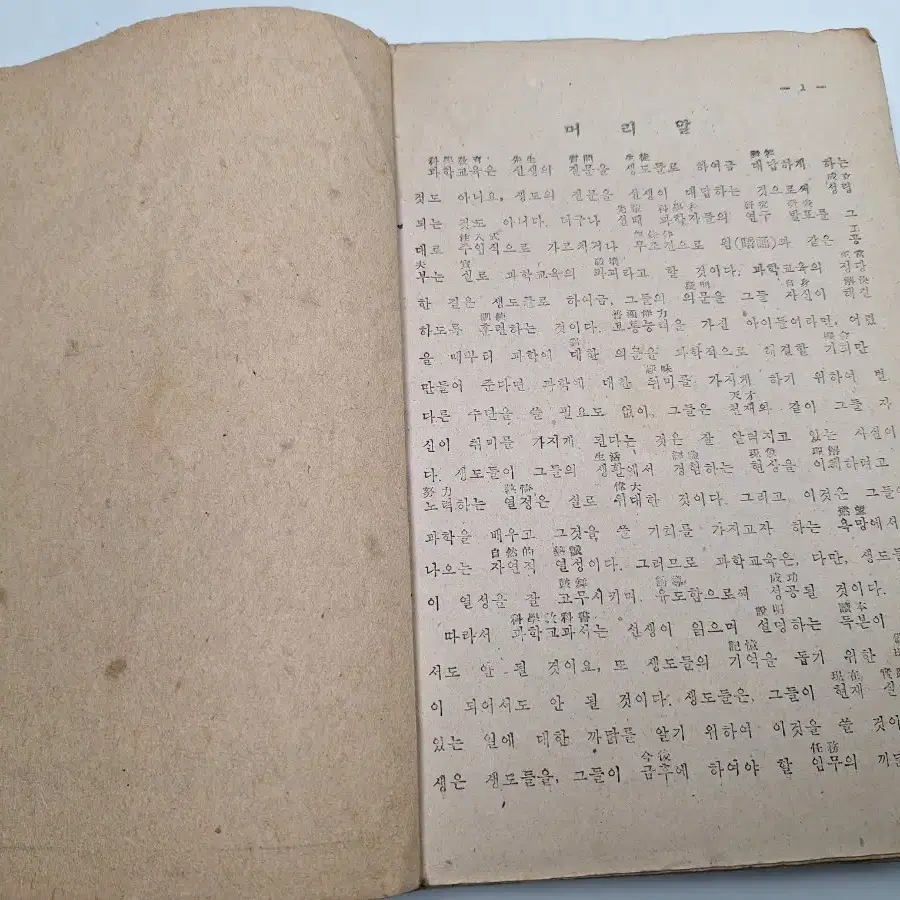 — 1 —
머 리 말
科學敎育 先生 質問 生徒
과학교육은 선생의 질문을 생도들로 하여금 대답하게 하는
것도 아니요, 생도의 질문을 선생이 대답하는 것으로써 성립
되는 것도 아니다. 더구나 선배 과학자들의 연구 발표를 그
注入式
대로 주입식으로 가르치거나 무조건으로 욈(暗誦)과 같은 공
부는 실로 과학교육의 파괴라고 할 것이다. 과학교육의 정당
自身 解決
한 길은 생도들로 하여금, 그들의 의문을 그들 자신이 해결
訓練 普通能力
하도록 훈련하는 것이다. 보통능력을 가진 아이들이라면, 어렸
機會
을 때부터 과학에 대한 의문을 과학적으로 해결할 기회만
趣味
만들어 준다면 과학에 대한 취미를 가지게 하기 위하여 별
天才
다른 수단을 쓸 필요도 없이, 그들은 천재와 같이 그들 자
신이 취미를 가지게 된다는 것은 잘 알려지고 있는 사실이
生活 現象 理解
다. 생도들이 그들의 생활에서 경험하는 현상을 이해하려고
努力 偉大
노력하는 열정은 실로 위대한 것이다. 그리고, 이것은 그들이
慾望
과학을 배우고 그것을 쓸 기회를 가지고자 하는 욕망에서
自然的 熱誠
나오는 자연적 열성이다. 그러므로 과학교육은, 다만, 생도들
鼓舞 成功
이 열성을 잘 고무시키며, 유도함으로써 성공될 것이다.
科學敎科書 說明 讀本
따라서 과학교과서는 선생이 읽으며 설명하는 독본이
記憶
서도 안 될 것이요, 또 생도들의 기억을 돕기 위한
現在
이 되어서도 안 될 것이다. 생도들은, 그들이 현재 실
있는 일에 대한 까닭를 알기 위하여 이것을 쓸 것이
今後 任務
생은 생도들을, 그들이 금후에 하여야 할 임무의 까닭